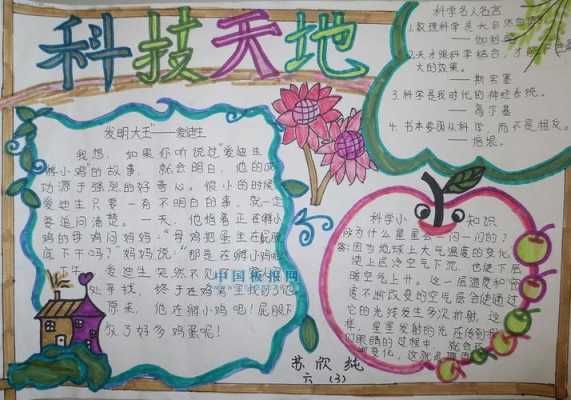 科技天地
发明大王——爱迪生
我想，如果你听说过"爱迪生
孵小鸡"的故事，就会明白，他的成
功源于强烈的好奇心。很小的时候
爱迪生只要一有不明白的事，就一定
要追问清楚。一天，他指着正在孵小
鸡的母鸡问妈妈："母鸡把蛋坐在屁股
底下干吗？"妈妈说："那是在孵小鸡呢
爱迪生突然不见
处寻找，终于在鸡窝里找到了他
原来，他在孵小鸡呢！屁股下
放了好多鸡蛋呢！
中国板报网
科学名人名言
1.数理科学是大自然
——伽利略
2.天才跟科学结合，才能
大的效果。
——斯宾塞
3.科学是我时代的神经系统。
——高尔基
4.书本要围从科学，而不是相反。
——培根。
科学小知识
为什么星星会一闪一闪的？
答：因为地球上大气温度的变化
使上层冷空气下沉，也使下层
暖空气上升。这一层温度和密
度不断改变的空气层会使通过
它的光线发生多次折射，这
样，星星发射的光在传到
们眼睛的过程中，就会
变化，这就
苏欣纯
六（3）